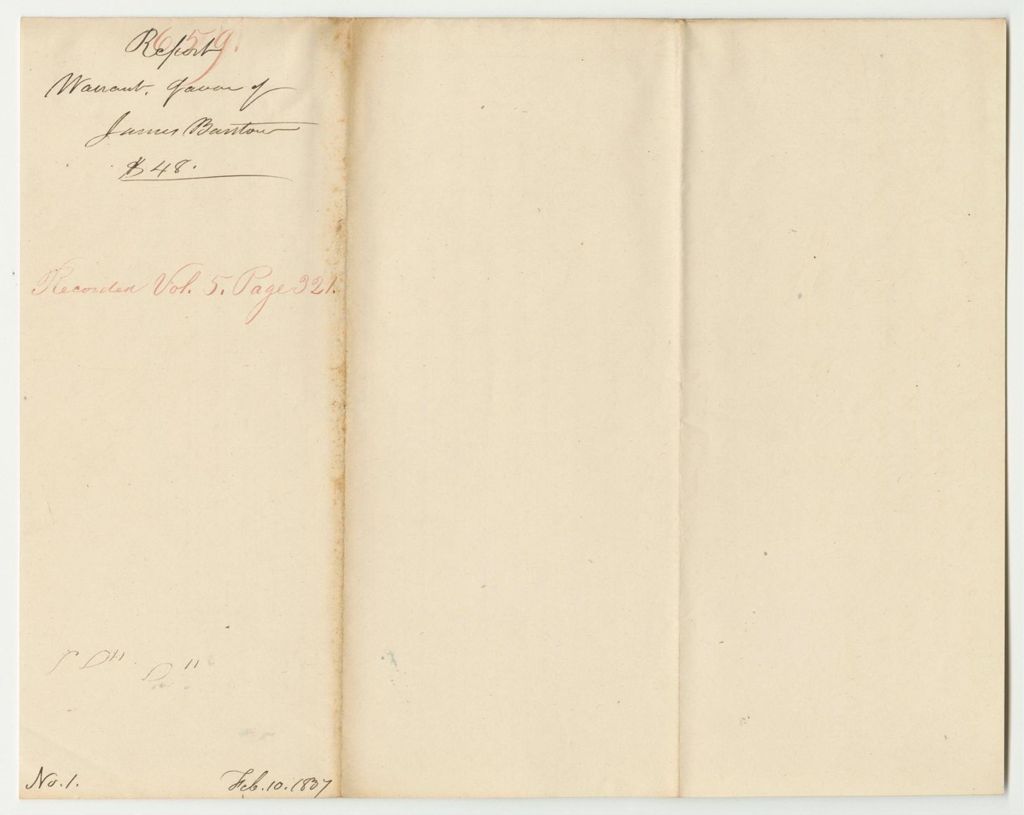 659.
Report
Warrant. favor of
James Barstow
$48.
Recorded Vol. 5. Page 321.
No. 1.
Feb. 10. 1837